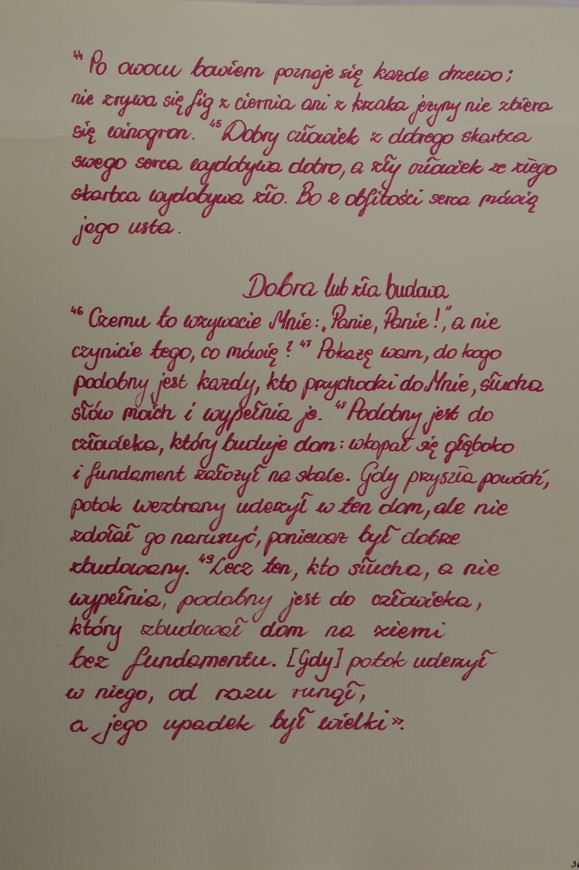 ⁴⁴ Po owocu bowiem poznaje się każde drzewo;
nie zrywa się fig z ciernia ani z krzaka jeżyny nie zbiera
się winogron. ⁴⁵ Dobry człowiek z dobrego skarbca
swego serca wydobywa dobro, a zły człowiek ze złego
skarbca wydobywa zło. Bo z obfitości serca mówią
jego usta.
Dobra lub zła budowa
⁴⁶ Czemu to wzywacie Mnie: „Panie, Panie!", a nie
czynicie tego, co mówię? ⁴⁷ Pokażę wam, do kogo
podobny jest każdy, kto przychodzi do Mnie, słucha
słów moich i wypełnia je. ⁴⁸ Podobny jest do
człowieka, który buduje dom: wkopał się głęboko
i fundament założył na skale. Gdy przyszła powódź,
potok wezbrany uderzył w ten dom, ale nie
zdołał go naruszyć, ponieważ był dobrze
zbudowany. ⁴⁹ Lecz ten, kto słucha, a nie
wypełnia, podobny jest do człowieka,
który zbudował dom na ziemi
bez fundamentu. [Gdy] potok uderzył
w niego, od razu runął,
a jego upadek był wielki».